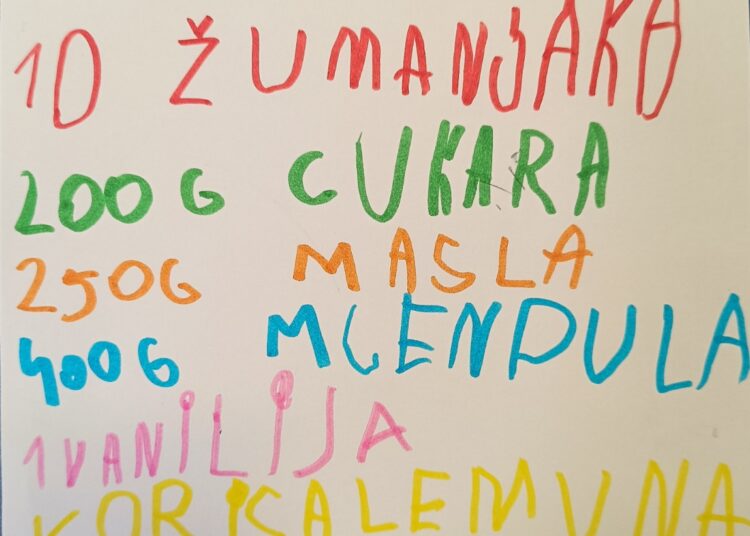 10 ŽUMANJAKA
200 G CUKARA
250G MASLA
400G MJENDULA
1 VANILIJA
KORICA LEMUNA